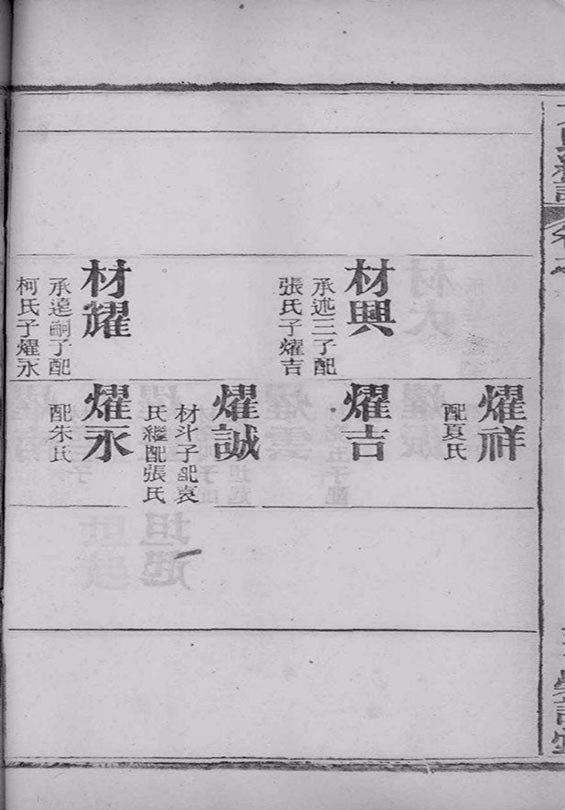 材興
承述三子配
張氏子燿吉
材耀
承遠嗣子配
柯氏子燿永
燿祥
配夏氏
燿吉
燿誠
材斗子配袁
氏繼配張氏
燿永
配朱氏